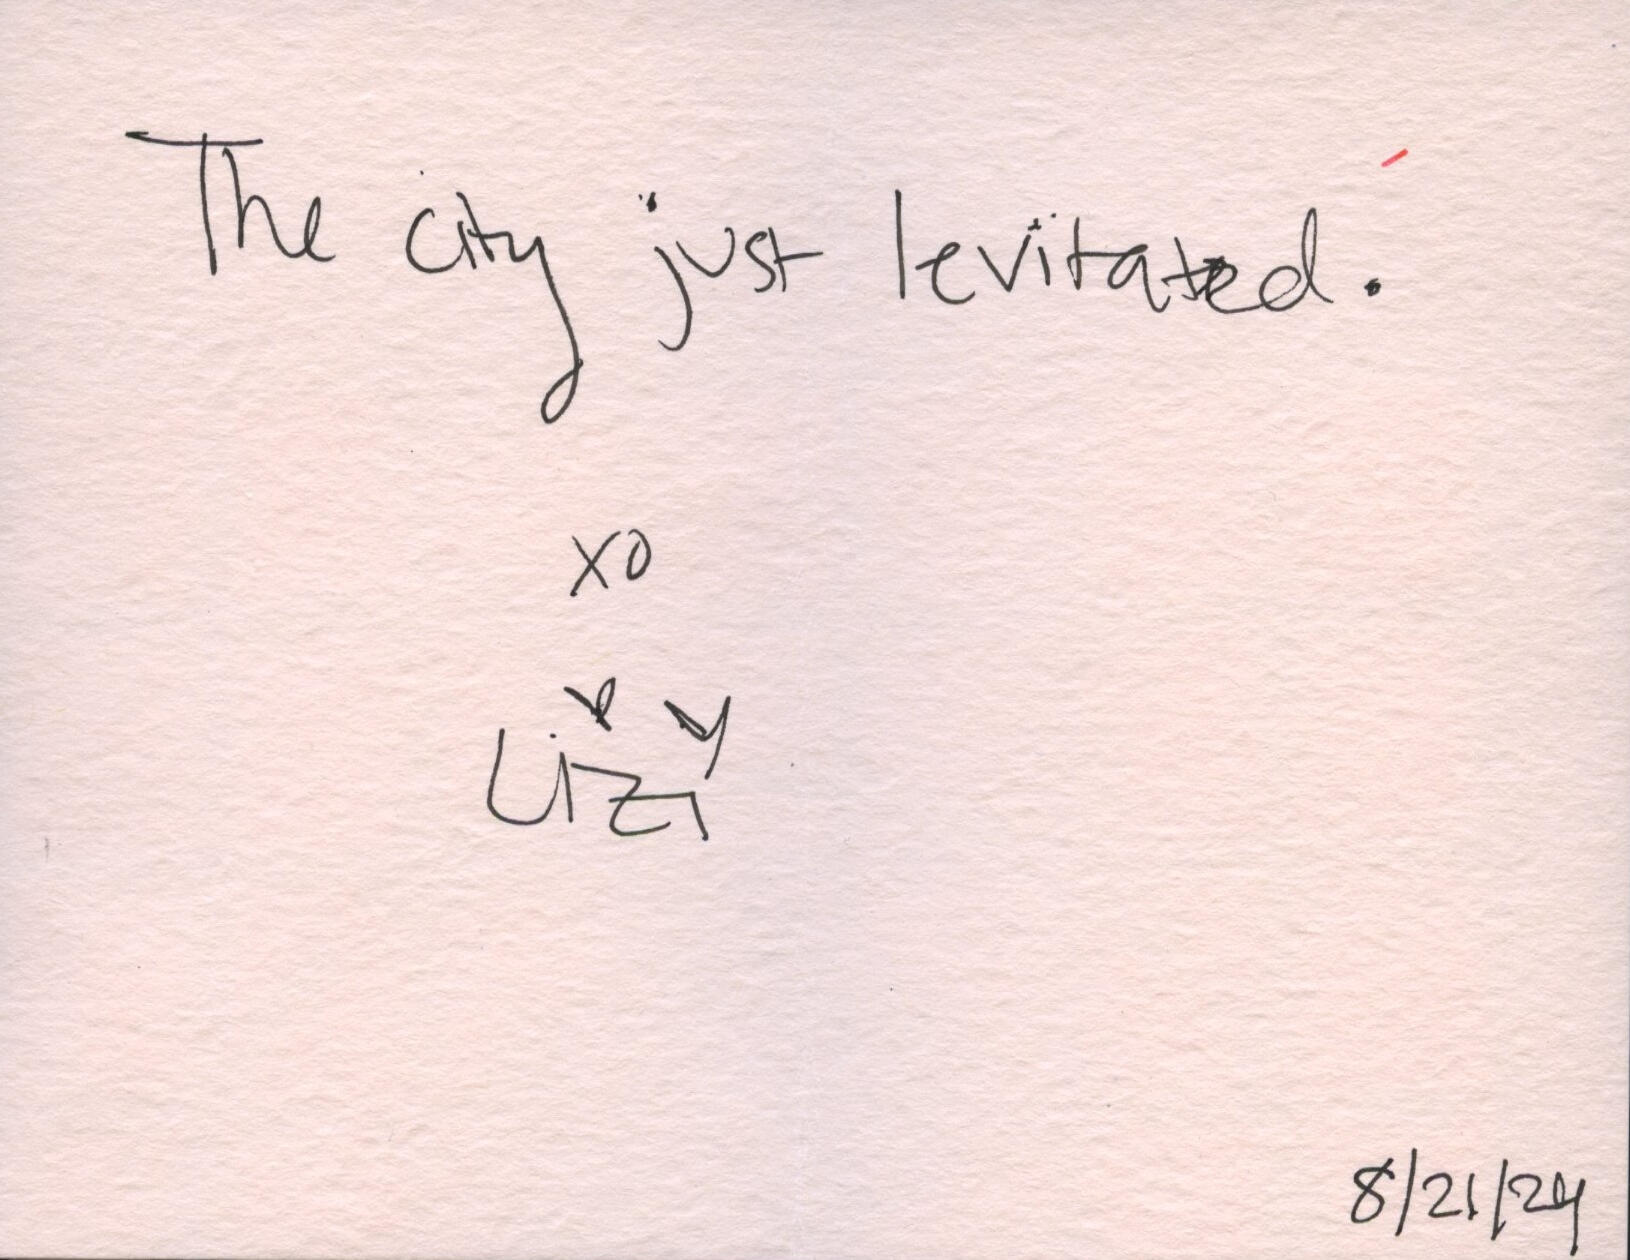 The city just levitated.
xo
Lizi
8/21/24